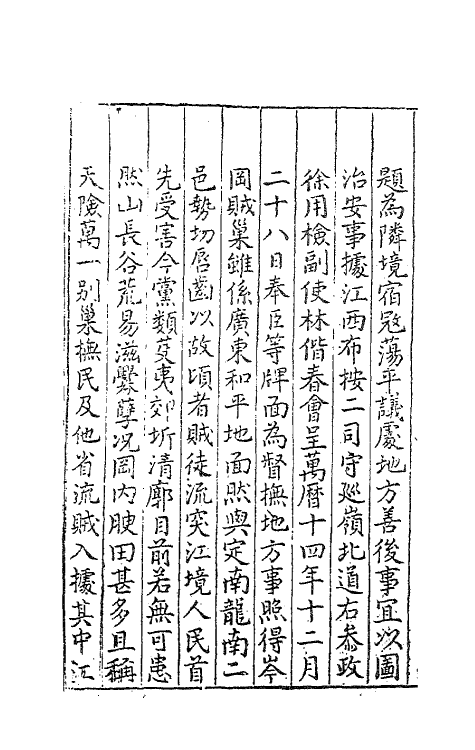 題為隣境宿冦蕩平議處地方善後事宜以圖
治安事據江西布按二司守廵嶺北道右叅政
徐用檢副使林偕春會呈萬曆十四年十二月
二十八日奉臣等牌面為督撫地方事照得岑
岡賊巢雖係廣東和平地面然與定南龍南二
邑勢切唇齒以故頃者賊徒流突江境人民首
先受害今黨類芟夷郊圻清廓目前若無可患
然山長谷荒易滋釁孽况岡內腴田甚多且稱
天險萬一别巢撫民及他省流賊入據其中江